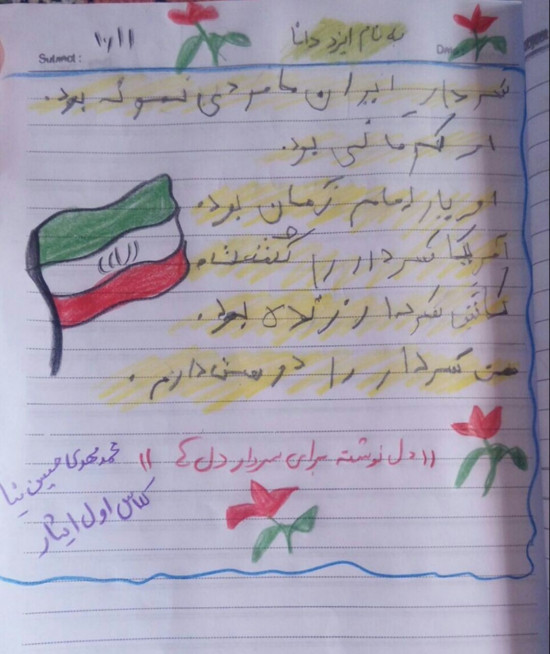 به نام ایزد دانا
Subject:
۱۰/۱۱
سردار ایران ما مردی نمونه بود.
او کرمانی بود.
او یار امام زمان بود.
آمریکا سردار را کشت
کاش سردار زنده بود.
من سردار را دوست دارم.
((دل نوشته برای سردار دل ها))
محمد مهدی حسین نیا
کلاس اول ایثار